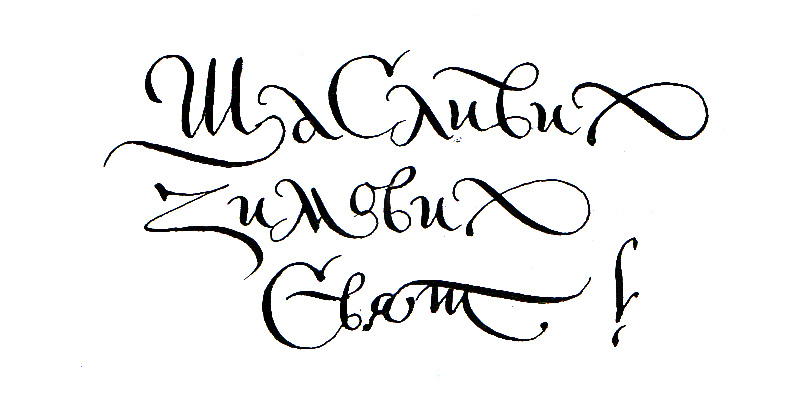 Щасливих
Зимових
Свят!